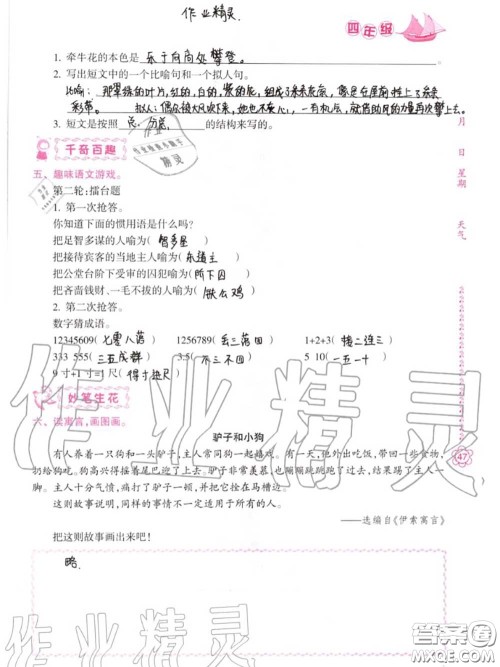 作业精灵
四年级
1. 牵牛花的本色是 乐于向高处攀登。
2. 写出短文中的一个比喻句和一个拟人句。
拟人:偶尔被大风吹下来,她也不灰心,一有机会,就借助风的力量再次攀上去。
3. 短文是按照 总 分 总 的结构来写的。
千奇百趣
五、趣味语文游戏。
第二轮:擂台题
1. 第一次抢答。
你知道下面的惯用语是什么吗?
把足智多谋的人喻为( 智多星 )
把接待宾客的当地主人喻为( 东道主 )
把公堂台阶下受审的囚犯喻为( 阶下囚 )
把吝啬钱财、一毛不拔的人喻为( 铁公鸡 )
2. 第二次抢答。
数字猜成语。
12345609( 七零八落 ) 1256789( 丢三落四 ) 1+2+3( 接二连三 )
333 555( 三五成群 ) 3.5( 不三不四 ) 5 10( 一五一十 )
9寸+1寸=1尺( 得寸进尺 )
妙笔生花
六、读寓言,画图画。
驴子和小狗
有人养着一只狗和一头驴子,主人常同狗一起嬉戏。有一天,他外出吃饭,带回一些食物,
扔给狗吃。狗高兴得摇着尾巴迎了上去。驴子非常羡慕,也蹦蹦跳跳跑了过去,结果踢了主人一
脚。主人十分气愤,痛打了驴子一顿,还把它拴在马槽边。
这则故事说明,同样的事情不一定适用于所有的人。
——选编自《伊索寓言》
把这则故事画出来吧!
略
月
日
星期
天气
47
作业精灵
作业精灵
答案圈
MXQE.COM